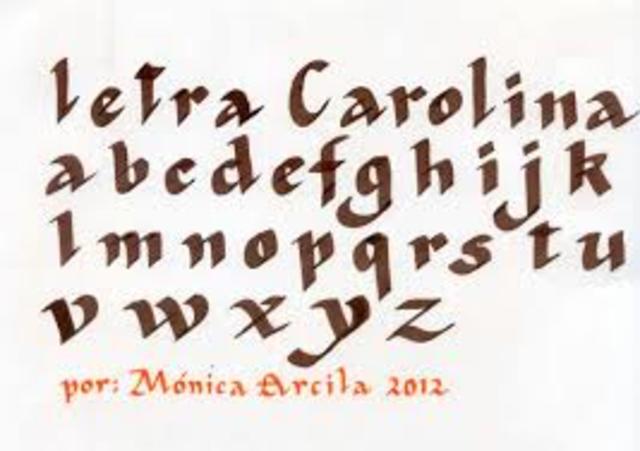 letra Carolina
a b c d e f g h i j k
l m n o p q r s t u
v w x y z
por: Mónica Arcila 2012